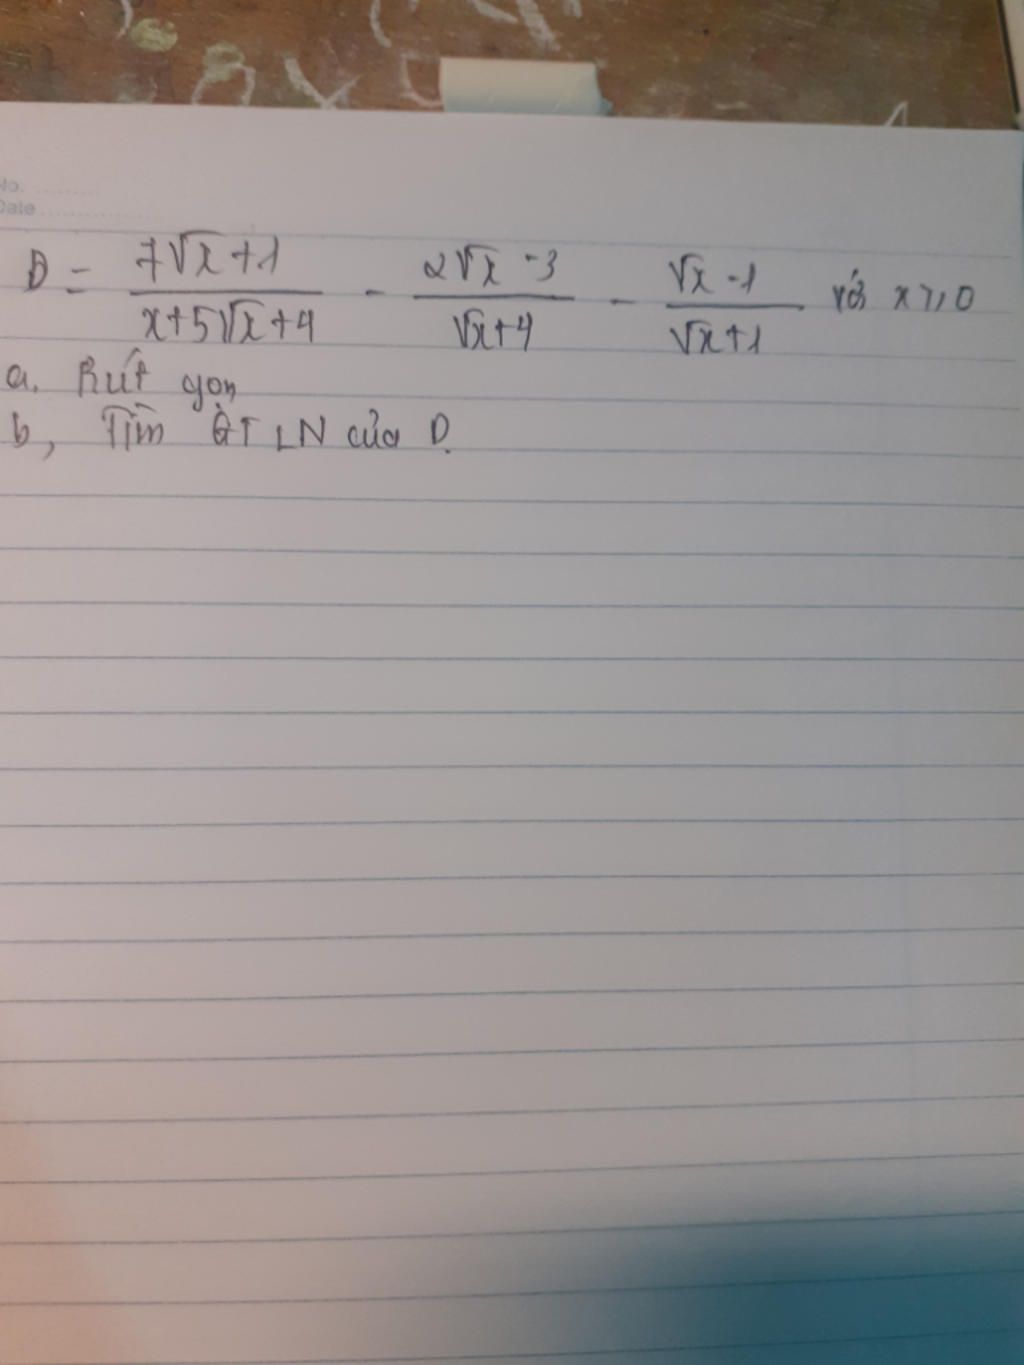 No. ..........
Date ..................
D = \frac{7\sqrt{x}+1}{x+5\sqrt{x}+4} - \frac{2\sqrt{x}-3}{\sqrt{x}+4} - \frac{\sqrt{x}-1}{\sqrt{x}+1} với x ⩾ 0
a. Rút gọn
b, Tìm GTLN của D.